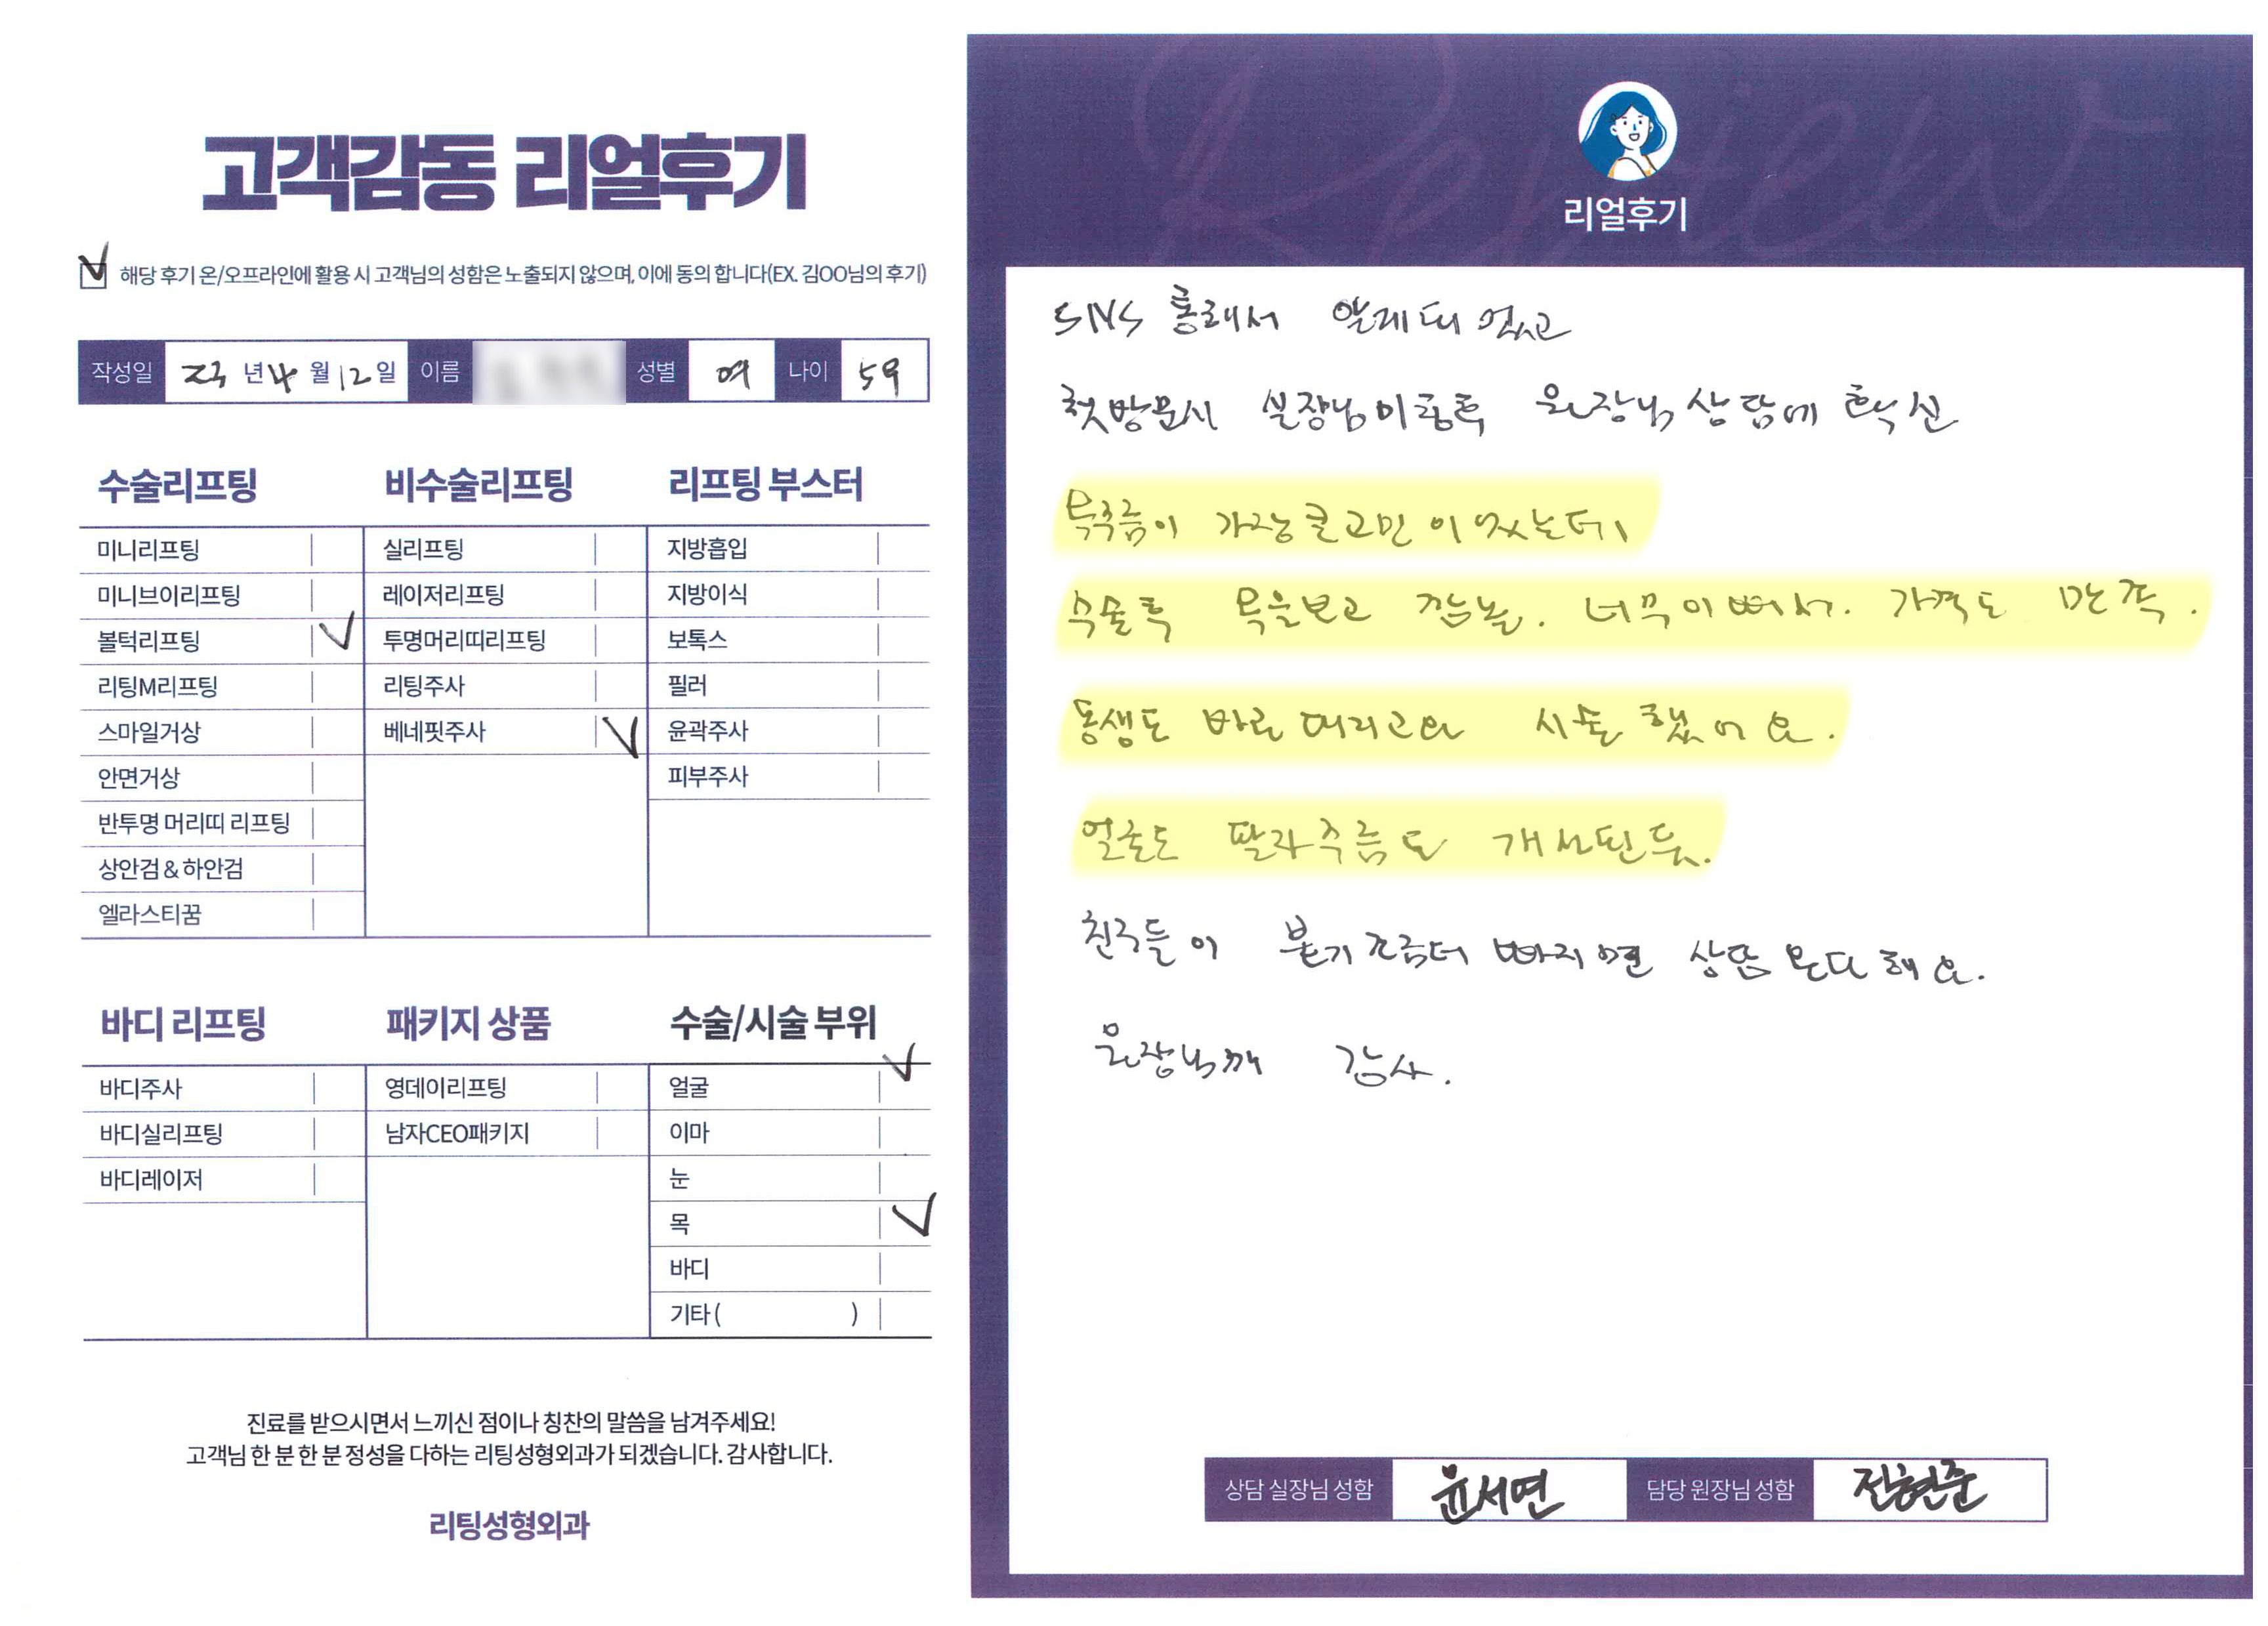 고객감동 리얼후기
해당 후기 온/오프라인에 활용 시 고객님의 성함은 노출되지 않으며, 이에 동의 합니다(EX. 김OO님의 후기)
작성일 23 년 4 월 12 일 이름 성별 여 나이 59
수술리프팅
미니리프팅
미니브이리프팅
볼턱리프팅
리팅M리프팅
스마일거상
안면거상
반투명 머리띠 리프팅
상안검 & 하안검
엘라스티꿈
비수술리프팅
실리프팅
레이저리프팅
투명머리띠리프팅
리팅주사
베네핏주사
리프팅 부스터
지방흡입
지방이식
보톡스
필러
윤곽주사
피부주사
바디 리프팅
바디주사
바디실리프팅
바디레이저
패키지 상품
영데이리프팅
남자CEO패키지
수술/시술 부위
얼굴
이마
눈
목
바디
기타 ( )
진료를 받으시면서 느끼신 점이나 칭찬의 말씀을 남겨주세요!
고객님 한 분 한 분 정성을 다하는 리팅성형외과가 되겠습니다. 감사합니다.
리팅성형외과
Review
리얼후기
SNS 통해서 알게 되었고
첫방문시 실장님 원장님 상담에 확신
목주름이 가장 큰 고민이었는데
수술후 목을보고 깜놀. 너무이뻐서. 가격도 만족.
동생도 바로 데리고와 시술 했어요.
얼굴도 팔자주름도 개선된듯.
친구들이 붓기 조금더 빠지면 상담 온다 해요.
원장님께 감사.
상담 실장님 성함 윤서연 담당 원장님 성함 전현준